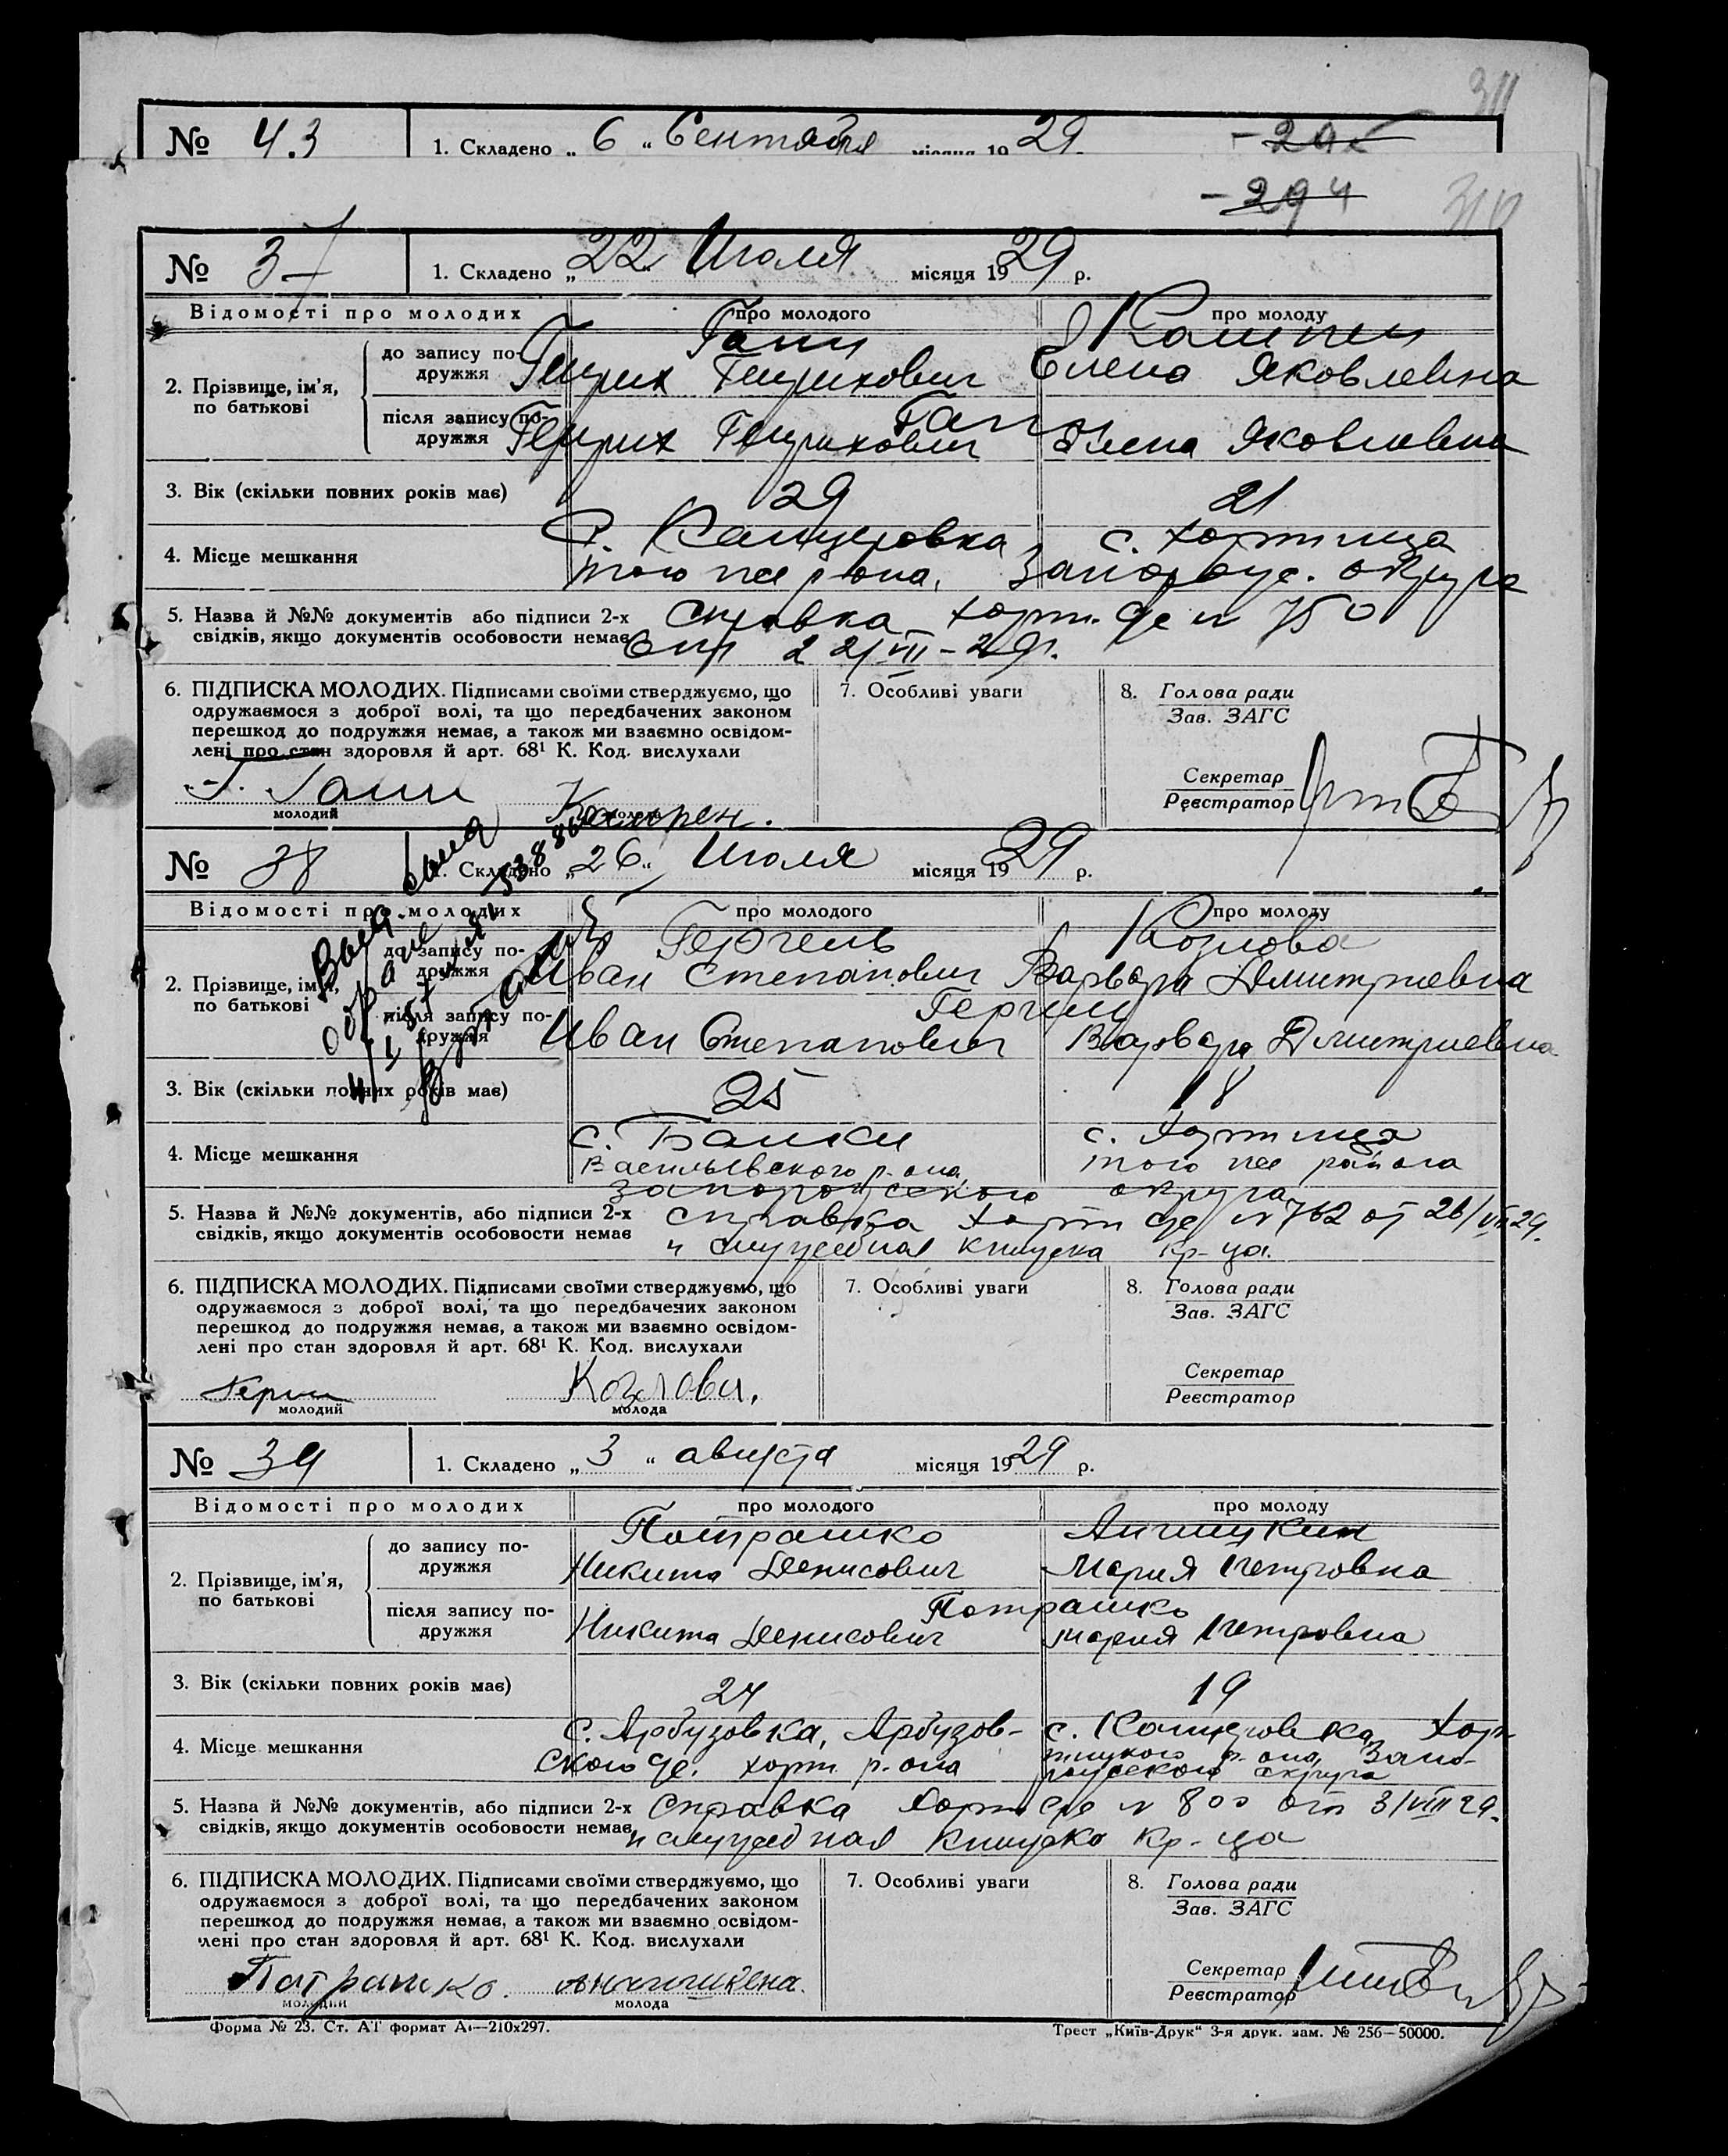 311
№ 43 1. Складено „ 6 “ Сентября місяця 19 29
- 295
- 294 310
№ 37 1. Складено „ 22 “ Июля місяця 19 29 р.
Відомості про молодих про молодого про молоду
2. Прізвище, ім’я, по батькові
до запису подружжя
Генрих Генрихович Елена Яковлевна
після запису подружжя
Генрих Генрихович Елена Яковлевна
3. Вік (скільки повних років має) 29 21
4. Місце мешкання с. Канцеровка с. Хортица
того же р-она, Запорож. округа
5. Назва й №№ документів або підписи 2-х справка Хорт. № 750
свідків, якщо документів особовости немає от 22/VII-29г.
6. ПІДПИСКА МОЛОДИХ. Підписами своїми стверджуємо, що 7. Особливі уваги 8. Голова ради
одружаємося з доброї волі, та що передбачених законом Зав. ЗАГС
перешкод до подружжя немає, а також ми взаємно освідом-
лені про стан здоровля й арт. 68¹ К. Код. вислухали
Секретар
Реєстратор
молодий молода
№ 38 1. Складено „ 26 “ Июля місяця 19 29 р.
Відомості про молодих про молодого про молоду
Козлова
2. Прізвище, ім’я, по батькові
до запису подружжя
Иван Степанович Варвара Дмитриевна
після запису подружжя
Иван Степанович Варвара Дмитриевна
3. Вік (скільки повних років має) 25 18
4. Місце мешкання с. Балки с. Хортица
Васильевского р-она, того же района
запорожского округа
5. Назва й №№ документів, або підписи 2-х справка Хорт № 762 от 26/VII 29.
свідків, якщо документів особовости немає и служебная книжка кр-ца.
6. ПІДПИСКА МОЛОДИХ. Підписами своїми стверджуємо, що 7. Особливі уваги 8. Голова ради
одружаємося з доброї волі, та що передбачених законом Зав. ЗАГС
перешкод до подружжя немає, а також ми взаємно освідом-
лені про стан здоровля й арт. 68¹ К. Код. вислухали
Секретар
Козлова. Реєстратор
молодий молода
№ 39 1. Складено „ 3 “ августа місяця 19 29 р.
Відомості про молодих про молодого про молоду
Потрашко
2. Прізвище, ім’я, по батькові
до запису подружжя
Никита Денисович Мария Петровна
Потрашко
після запису подружжя
Никита Денисович Мария Петровна
3. Вік (скільки повних років має) 24 19
4. Місце мешкання с. Арбузовка, Арбузов- с. Канцеровка, Хор-
ского хорт р-она тицкого р-она, Запо-
рожского округа
5. Назва й №№ документів, або підписи 2-х справка Хорт № 800 от 3/VIII 29.
свідків, якщо документів особовости немає и служебная книжка кр-ца
6. ПІДПИСКА МОЛОДИХ. Підписами своїми стверджуємо, що 7. Особливі уваги 8. Голова ради
одружаємося з доброї волі, та що передбачених законом Зав. ЗАГС
перешкод до подружжя немає, а також ми взаємно освідом-
лені про стан здоровля й арт. 68¹ К. Код. вислухали
Секретар
Потрашко. Реєстратор
молодий молода
Форма № 23. Ст. АТ формат А₄—210х297. Трест „Київ-Друк“ 3-я друк. зам. № 256—50000.